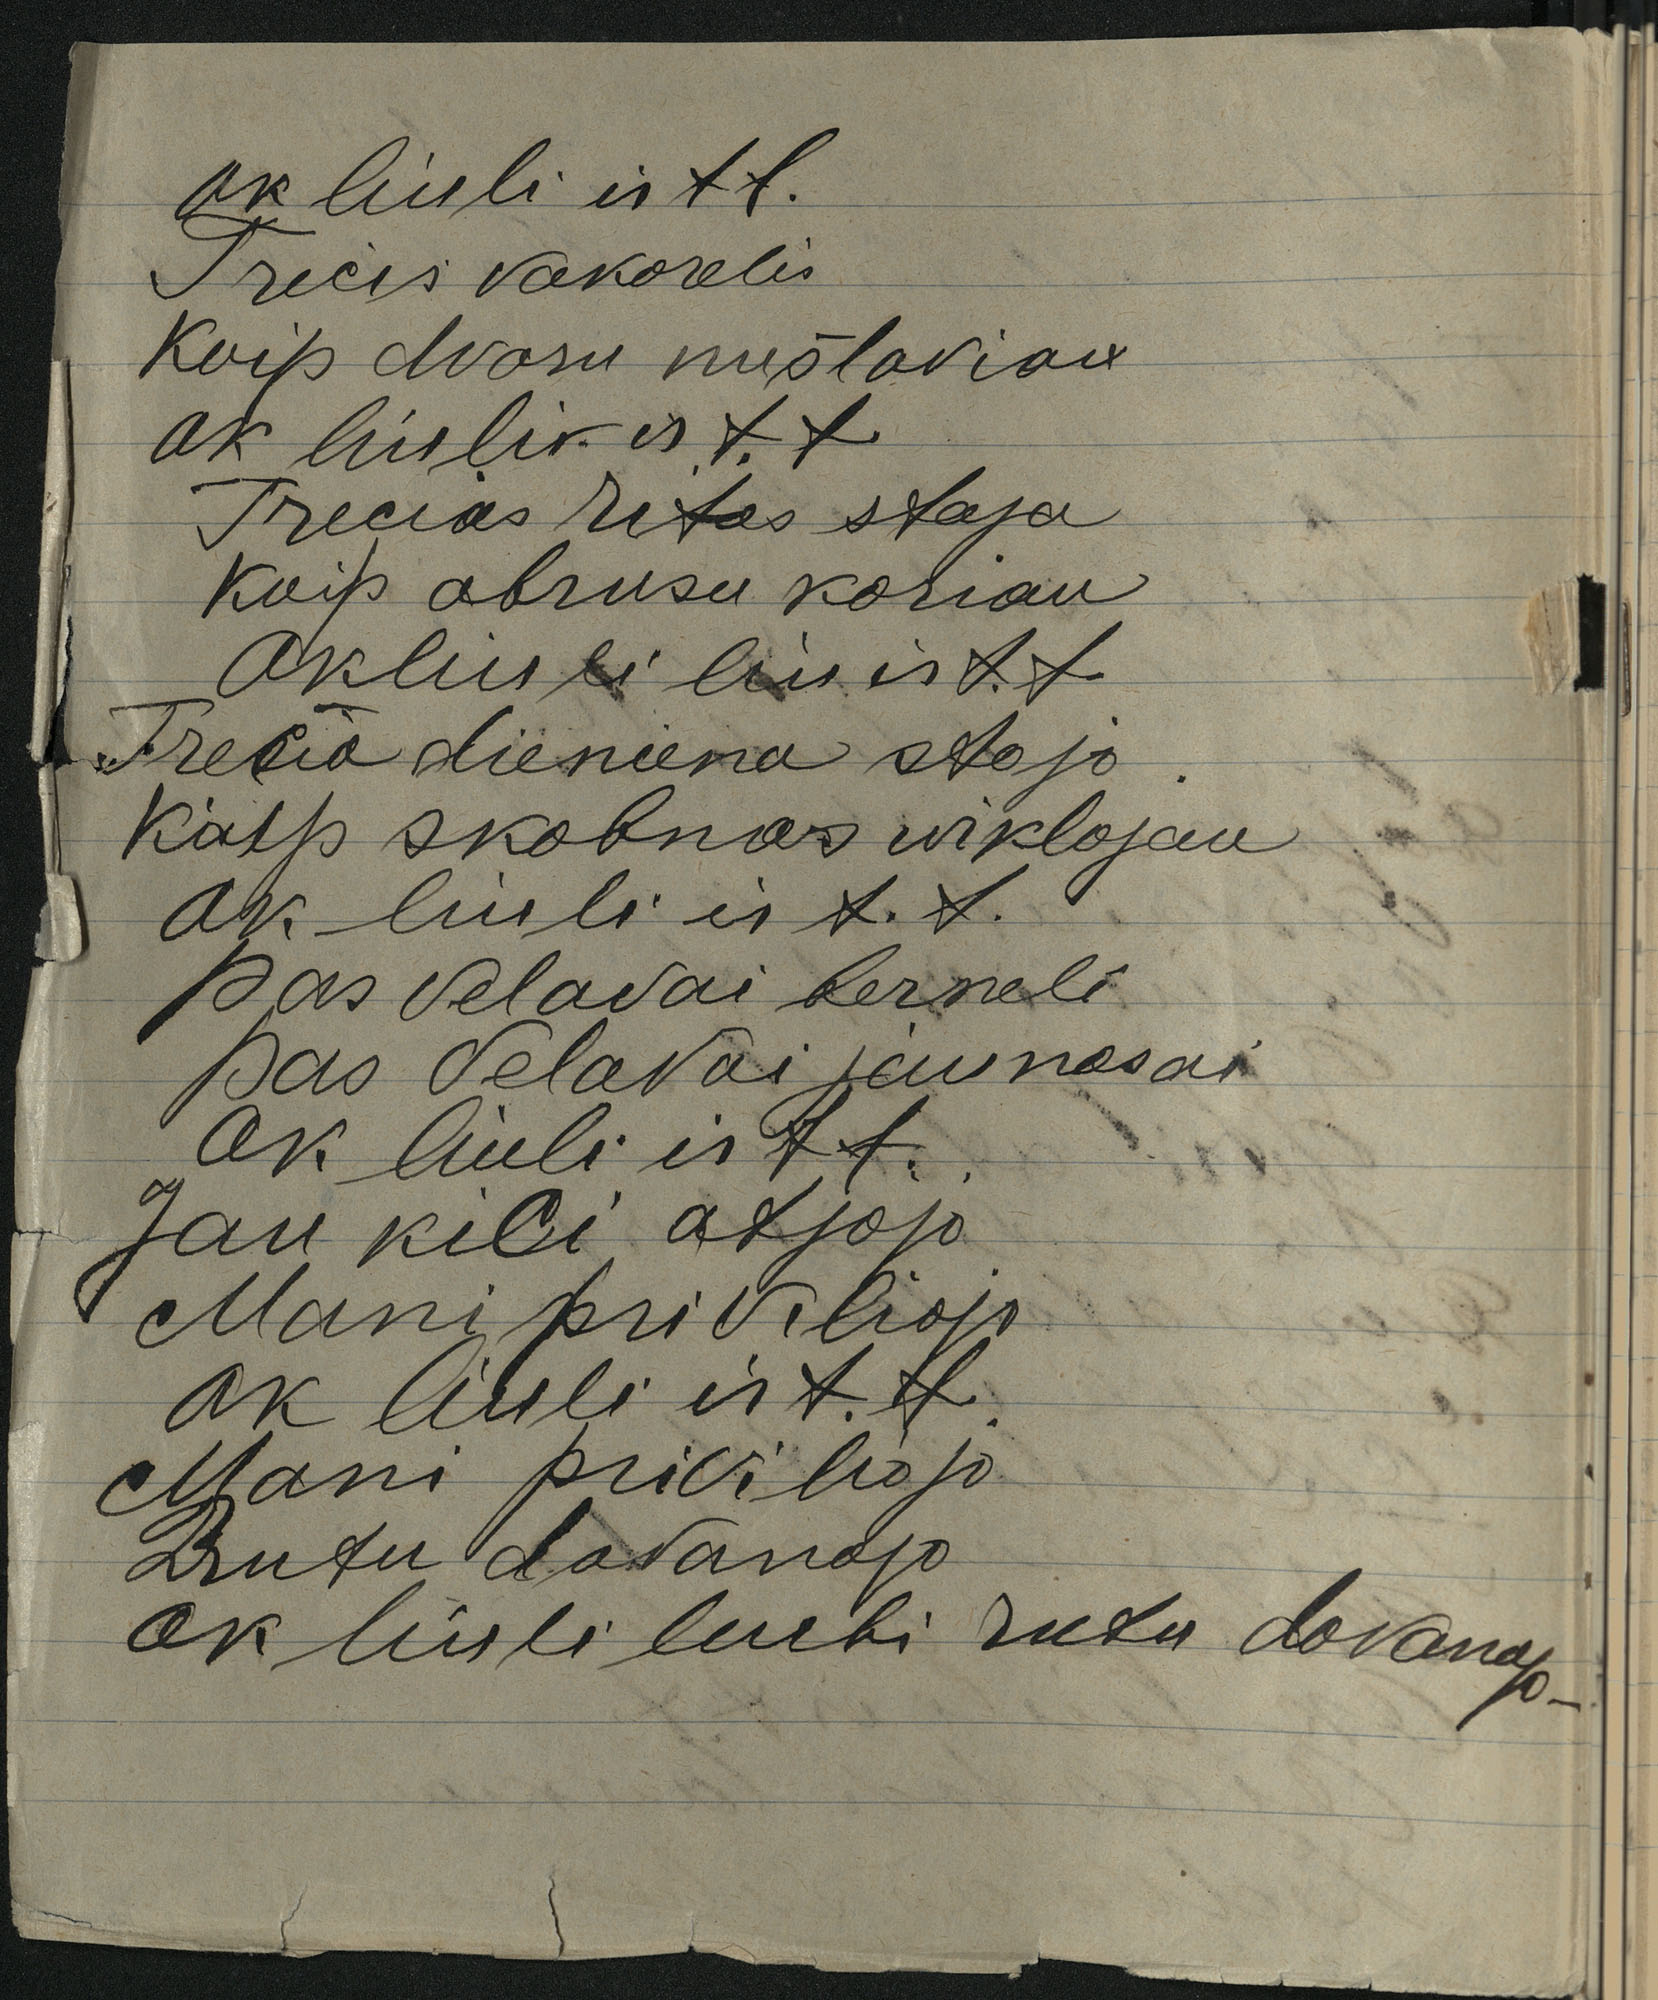 ak liuli ir t t.
Trecis vakorelis
Kuip dvoru nušlaviau
ak liulir ir t. t
Trecias ritas staja
Kuip abrusu koriau
Ak liuli liu ir t. t
Trecia dieniena stojo
Kaip skobnas wiklojau
ak liuli ir t. t.
pas velavai berneli
pas velavai jaunasai
Ak liuli ir t t.
Jau kili atjojo
Mani priviliojo
ak liuli ir t. t.
Mani priviliojo
Rutu dovanojo
ak liuli liuli rutu dovanojo